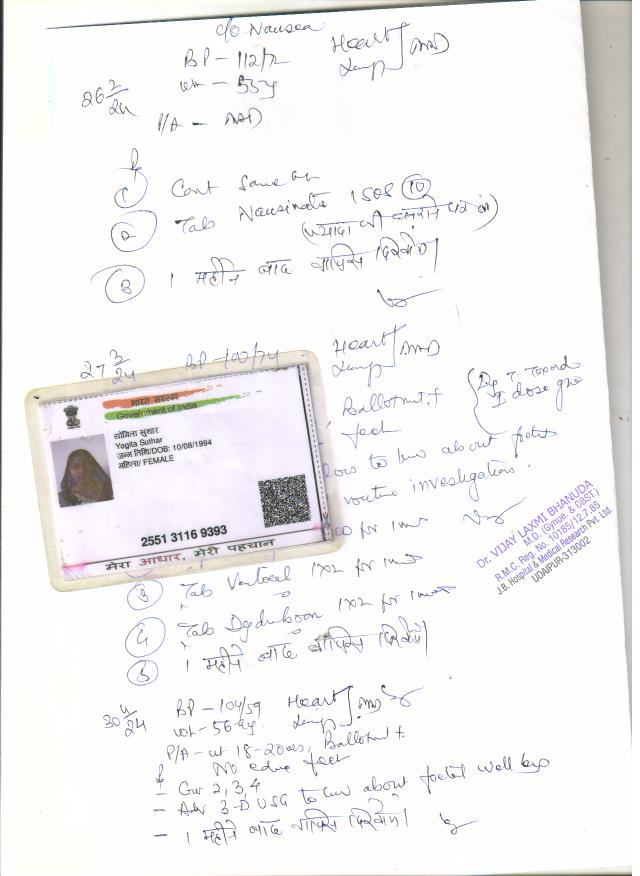 c/o Nausea
BP - 112/72
Heart
Lungs
NAD
26 2/24
wt - 55kg
P/A - NAD
① Cont same
② Tab 1 SOS ⑩
③ 1 महीने बाद वापिस दिखावें
27 3/24
BP - 100/74
Heart
Lungs
NAD
भारत सरकार
Government of India
योगिता सुथार
Yogita Suthar
जन्म तिथि/DOB: 10/08/1994
महिला/ FEMALE
2551 3116 9393
मेरा आधार, मेरी पहचान
Ballotment +
feet
I dose
to know about foetal
routine investigations.
for 1 month
Dr. VIJAY LAXMI BHANUDA
M.D. (Gynae. & OBST.)
R.M.C. Reg. No. 10185/12.7.85
J.B. Hospital & Medical Research Pvt. Ltd.
UDAIPUR-313002
③ Tab 1x2 for 1 month
④ Tab Dydroboon 1x2 for 1 month
⑤ 1 महीने बाद वापिस दिखावें
30 4/24
BP - 104/59
Heart
Lungs
NAD
wt - 56 kg.
P/A - ut 18-20 wks, Ballotment +
No edema feet
- Cont 2, 3, 4
- Adv 3-D USG to know about foetal well being
- 1 महीने बाद वापिस दिखावें